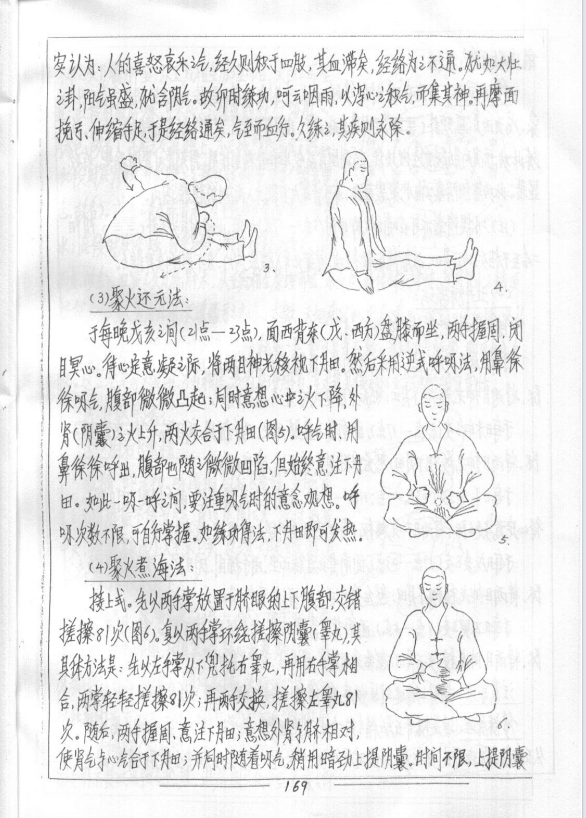 实认为：人的喜怒哀乐之气，经久则积于四肢，其血滞矣，经络为之不通。犹如火灶
之卦，阳气虽盛，
故卯时练功，呵云咽雨，以泻心之积气，而集其神。再摩面
伸缩手足，于是经络通矣，气至而血行。久练之，其疾则永除。
3.
4.
(3)聚火还元法：
于每晚戌亥之间(21点—23点)，面西背东(戊、西方)盘膝而坐，两手握固、闭
目冥心。待心定意凝之际，将两目神光移视下丹田。然后采用逆式呼吸法，用鼻徐
徐吸气，腹部微微凸起；同时意想心中之火下降，外
肾(阴囊)之火上升，两火交合于下丹田(图5)。呼气时，用
鼻徐徐呼出，腹部也随之微微凹陷，但始终意注下丹
田。如此一吸一呼之间，要注重吸气时的意念观想。呼
吸次数不限，可自行掌握。如练功得法，下丹田即可发热。
5.
(4)聚火煮海法：
接上式。先以两手掌放置于脐眼的上下腹部，交错
搓擦81次(图6)。复以两手掌环绕搓擦阴囊(睾丸)，其
具体方法是：先以左手掌从下兜托右睾丸，再用右手掌相
合，两掌轻轻搓擦81次；再两手交换，搓擦左睾丸81
次。随后，两手握固、意注下丹田；意想外肾与脐相对，
6.
使肾气与心气合于下丹田；并同时随着吸气，稍用暗劲上提阴囊。时间不限，上提阴囊
169